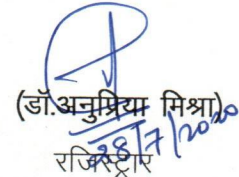 (डॉ.अनुप्रिया मिश्रा)
28/7/2020
रजिस्ट्रार